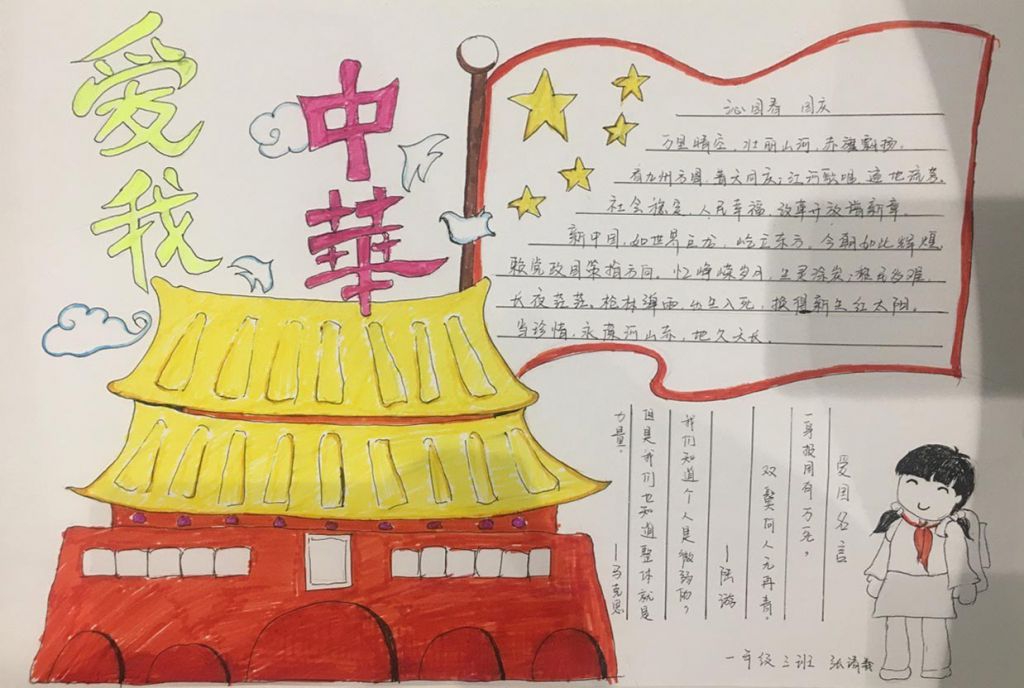 爱我
中華
沁园春 国庆
万里晴空,壮丽山河,赤旗飘扬。
看九州方圆,普天同庆;江河歌唱,遍地流芳。
社会稳定,人民幸福,改革开放谱新章。
新中国,如世界巨龙,屹立东方。今朝如此辉煌,
赖党政国策指方向。忆峥嵘岁月,生灵涂炭;多难,
长夜茫茫。枪林弹雨,出生入死,换得新生红太阳。
当珍惜,永葆河山赤,地久天长。
爱国名言
一身报国有万死,
双鬓向人无再青。
—陆游
我们知道个人是微弱的,
但是我们也知道整体就是
力量。 —马克思
一年级三班 张